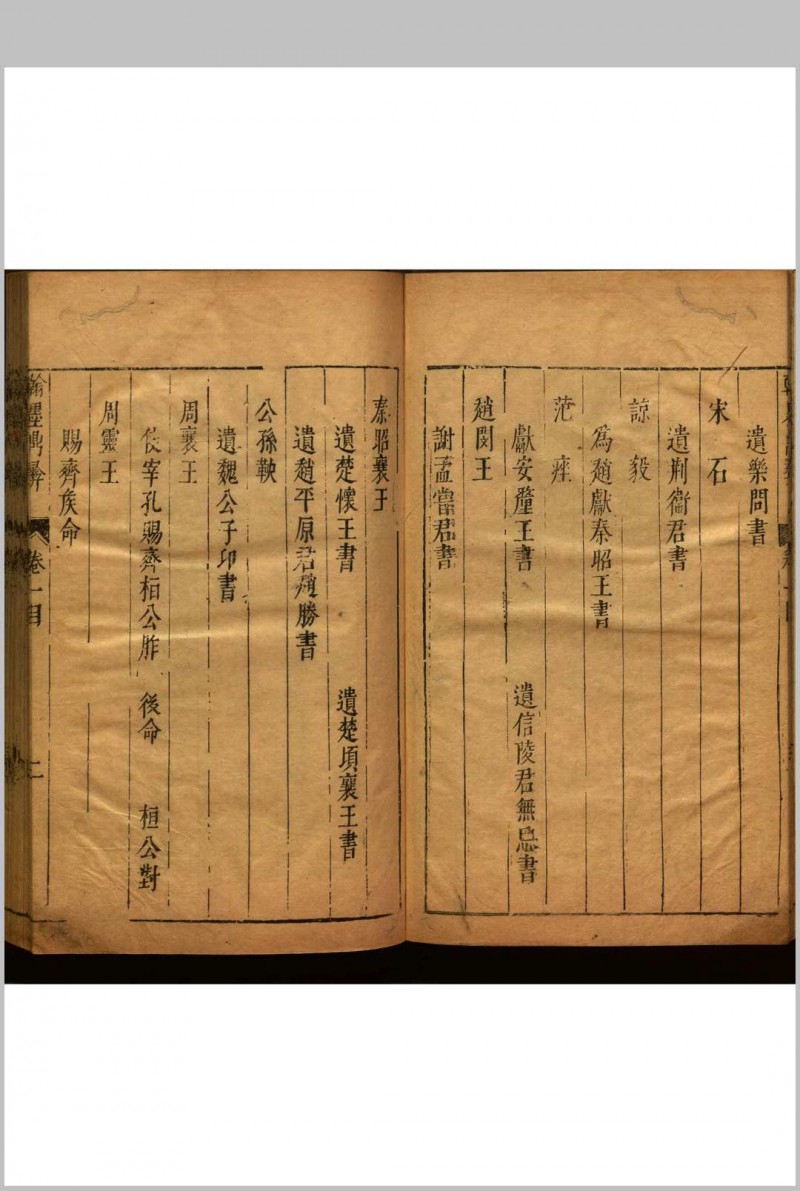 遺樂問書
宋石
遺荆衞君書
諒毅
為趙獻秦昭王書
范痤
獻安釐王書 遺信陵君無忌書
趙閔王
謝孟嘗君書
秦昭襄王
遺楚懷王書 遺楚頃襄王書
遺趙平原君趙勝書
公孫鞅
遺魏公子卬書
周襄王
使宰孔賜齊桓公胙 後命 桓公對
周靈王
賜齊侯命
卷一目